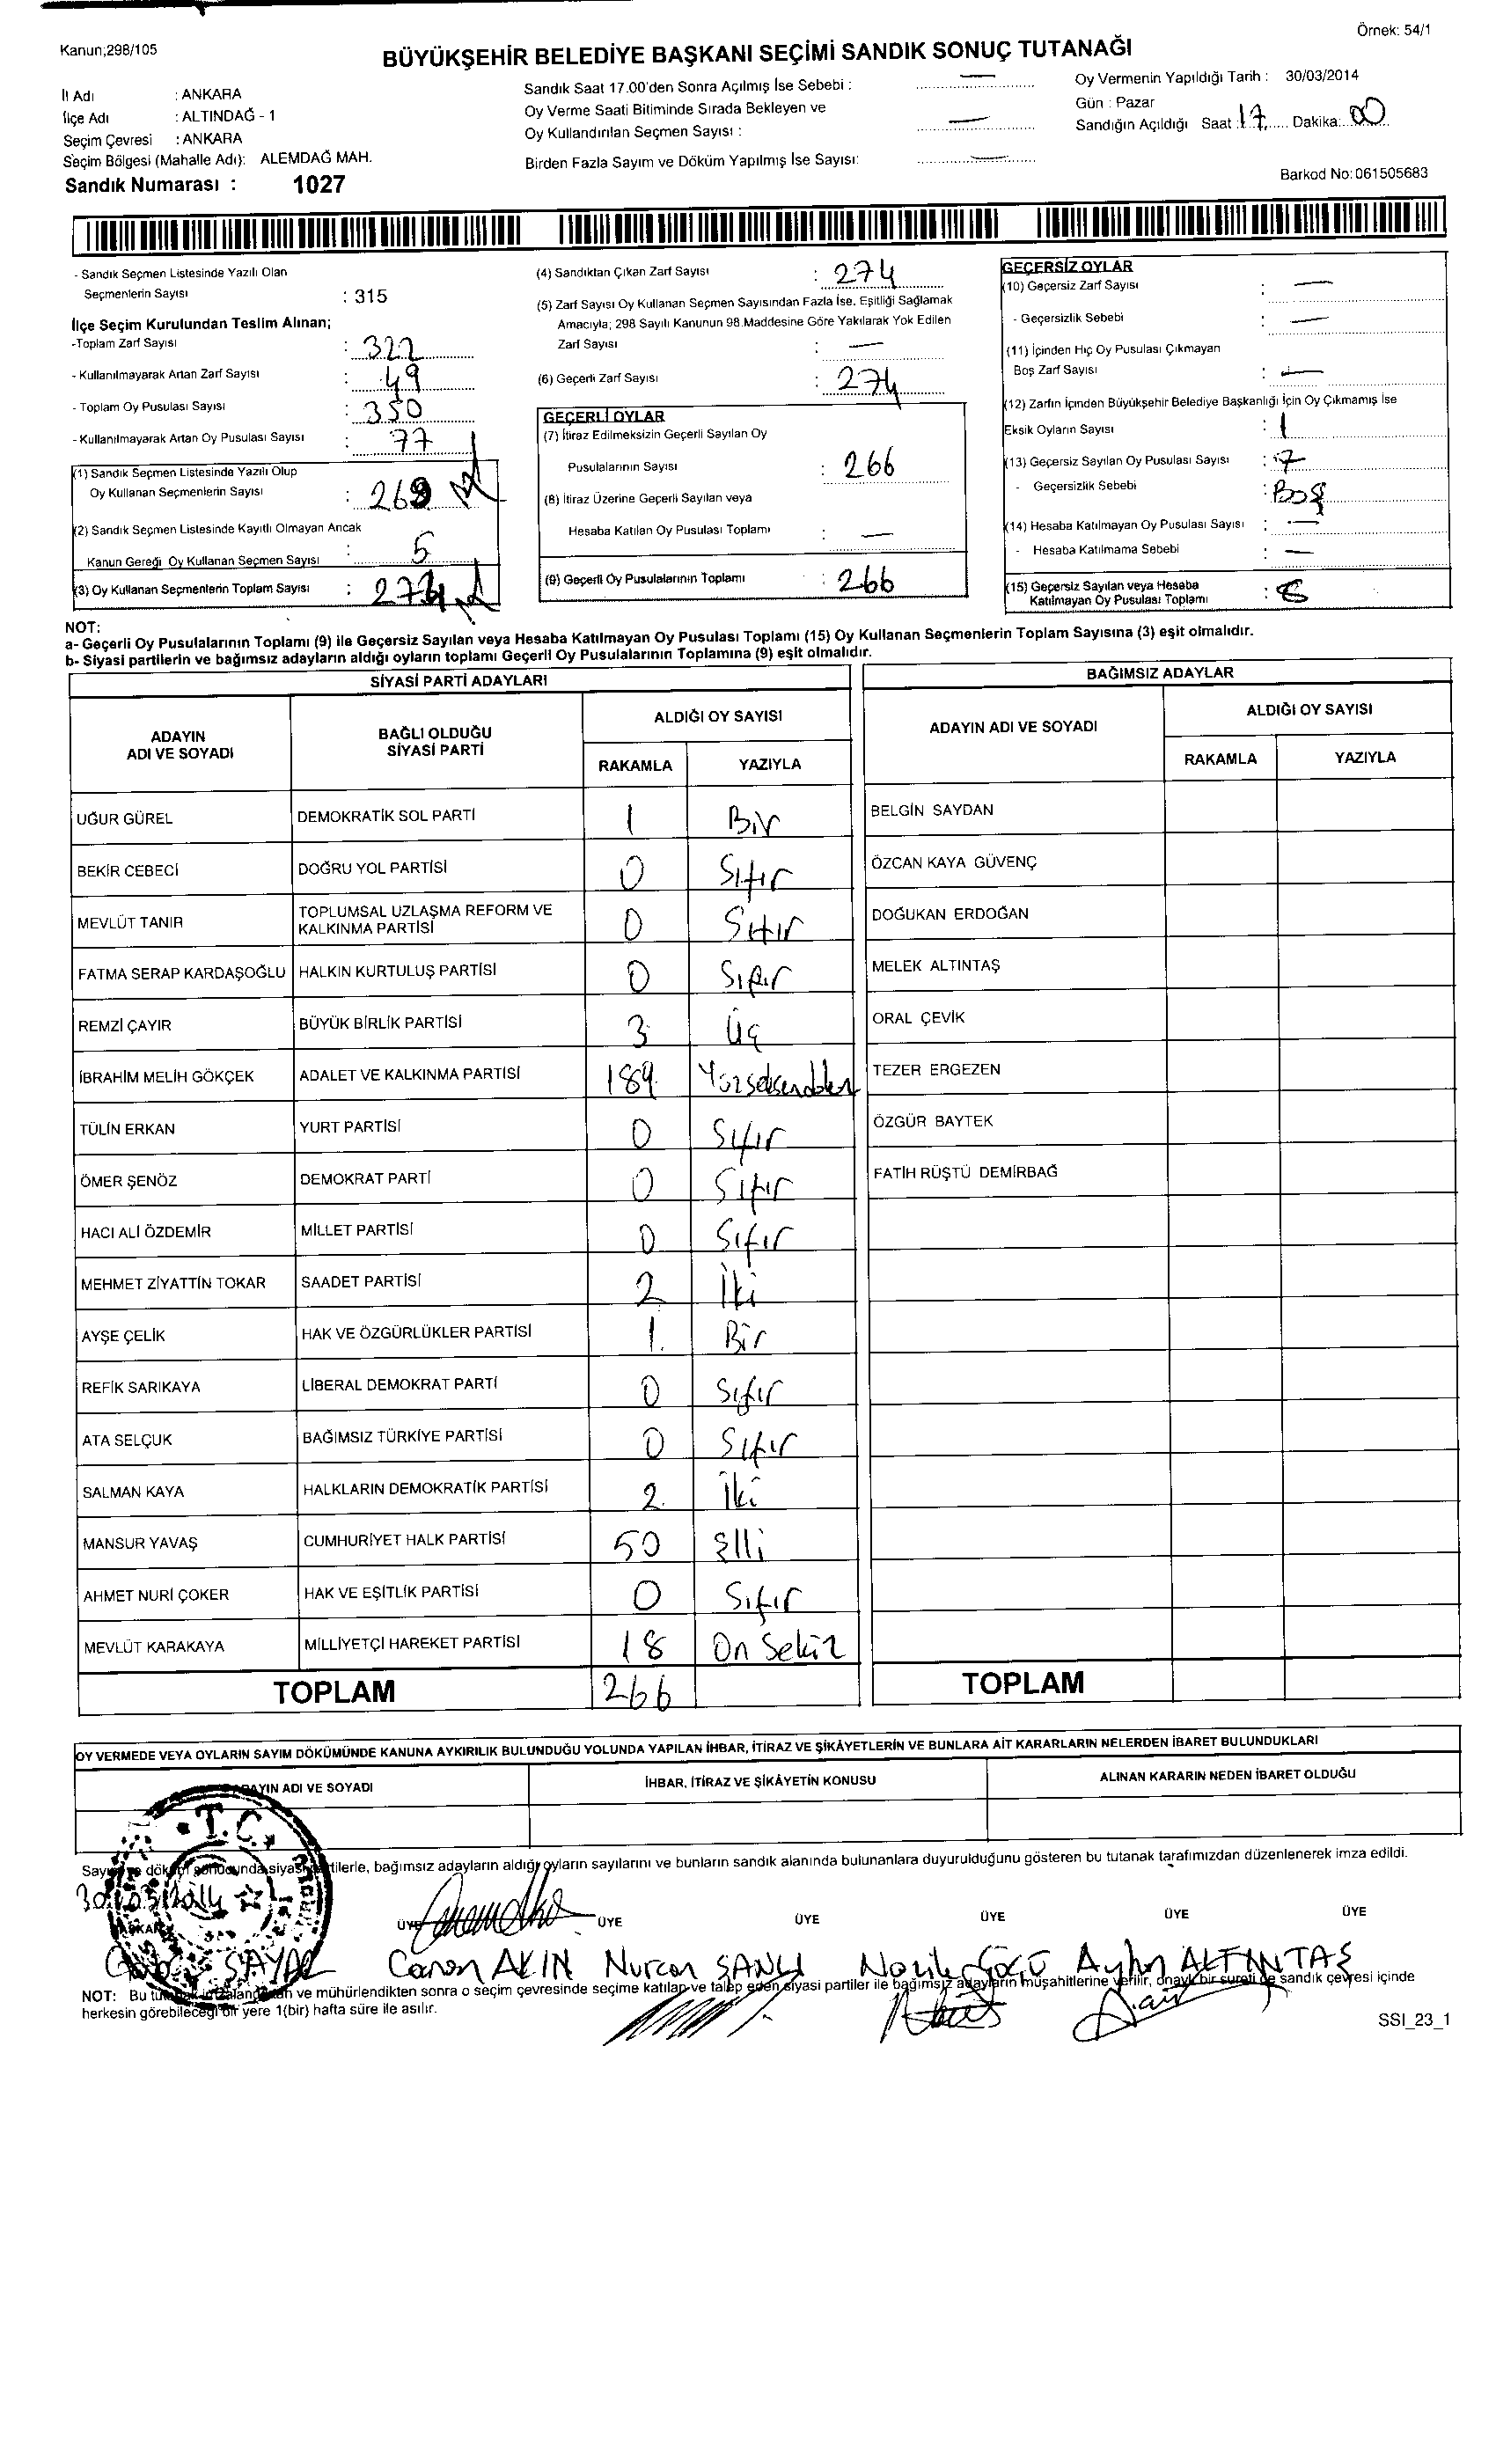 Örnek: 54/1
Kanun;298/105
BÜYÜKŞEHİR BELEDİYE BAŞKANI SEÇİMİ SANDIK SONUÇ TUTANAĞI
İl Adı : ANKARA
İlçe Adı : ALTINDAĞ - 1
Seçim Çevresi : ANKARA
Seçim Bölgesi (Mahalle Adı): ALEMDAĞ MAH.
Sandık Numarası : 1027
Sandık Saat 17.00'den Sonra Açılmış İse Sebebi : —
Oy Verme Saati Bitiminde Sırada Bekleyen ve
Oy Kullandırılan Seçmen Sayısı : —
Birden Fazla Sayım ve Döküm Yapılmış İse Sayısı: —
Oy Vermenin Yapıldığı Tarih : 30/03/2014
Gün : Pazar
Sandığın Açıldığı Saat : 17 Dakika: 00
Barkod No:061505683
- Sandık Seçmen Listesinde Yazılı Olan
Seçmenlerin Sayısı : 315
İlçe Seçim Kurulundan Teslim Alınan;
-Toplam Zarf Sayısı : 322
- Kullanılmayarak Artan Zarf Sayısı : 49
- Toplam Oy Pusulası Sayısı : 350
- Kullanılmayarak Artan Oy Pusulası Sayısı : 77
(1) Sandık Seçmen Listesinde Yazılı Olup
Oy Kullanan Seçmenlerin Sayısı : 269
(2) Sandık Seçmen Listesinde Kayıtlı Olmayan Ancak
Kanun Gereği Oy Kullanan Seçmen Sayısı : 5
(3) Oy Kullanan Seçmenlerin Toplam Sayısı : 274
(4) Sandıktan Çıkan Zarf Sayısı : 274
(5) Zarf Sayısı Oy Kullanan Seçmen Sayısından Fazla İse, Eşitliği Sağlamak
Amacıyla; 298 Sayılı Kanunun 98.Maddesine Göre Yakılarak Yok Edilen
Zarf Sayısı : —
(6) Geçerli Zarf Sayısı : 274
GEÇERLİ OYLAR
(7) İtiraz Edilmeksizin Geçerli Sayılan Oy
Pusulalarının Sayısı : 266
(8) İtiraz Üzerine Geçerli Sayılan veya
Hesaba Katılan Oy Pusulası Toplamı : —
(9) Geçerli Oy Pusulalarının Toplamı : 266
GEÇERSİZ OYLAR
(10) Geçersiz Zarf Sayısı : —
- Geçersizlik Sebebi : —
(11) İçinden Hiç Oy Pusulası Çıkmayan
Boş Zarf Sayısı : —
(12) Zarfın İçinden Büyükşehir Belediye Başkanlığı İçin Oy Çıkmamış İse
Eksik Oyların Sayısı : 1
(13) Geçersiz Sayılan Oy Pusulası Sayısı : 7
- Geçersizlik Sebebi : Boş
(14) Hesaba Katılmayan Oy Pusulası Sayısı : —
- Hesaba Katılmama Sebebi : —
(15) Geçersiz Sayılan veya Hesaba
Katılmayan Oy Pusulası Toplamı : 8
NOT:
a- Geçerli Oy Pusulalarının Toplamı (9) ile Geçersiz Sayılan veya Hesaba Katılmayan Oy Pusulası Toplamı (15) Oy Kullanan Seçmenlerin Toplam Sayısına (3) eşit olmalıdır.
b- Siyasi partilerin ve bağımsız adayların aldığı oyların toplamı Geçerli Oy Pusulalarının Toplamına (9) eşit olmalıdır.
SİYASİ PARTİ ADAYLARI
ADAYIN ADI VE SOYADI
BAĞLI OLDUĞU SİYASİ PARTİ
ALDIĞI OY SAYISI
RAKAMLA YAZIYLA
UĞUR GÜREL DEMOKRATİK SOL PARTİ 1 Bir
BEKİR CEBECİ DOĞRU YOL PARTİSİ 0 Sıfır
MEVLÜT TANIR TOPLUMSAL UZLAŞMA REFORM VE KALKINMA PARTİSİ 0 Sıfır
FATMA SERAP KARDAŞOĞLU HALKIN KURTULUŞ PARTİSİ 0 Sıfır
REMZİ ÇAYIR BÜYÜK BİRLİK PARTİSİ 3 Üç
İBRAHİM MELİH GÖKÇEK ADALET VE KALKINMA PARTİSİ 189
TÜLİN ERKAN YURT PARTİSİ 0 Sıfır
ÖMER ŞENÖZ DEMOKRAT PARTİ 0 Sıfır
HACI ALİ ÖZDEMİR MİLLET PARTİSİ 0 Sıfır
MEHMET ZİYATTİN TOKAR SAADET PARTİSİ 2 İki
AYŞE ÇELİK HAK VE ÖZGÜRLÜKLER PARTİSİ 1. Bir
REFİK SARIKAYA LİBERAL DEMOKRAT PARTİ 0 Sıfır
ATA SELÇUK BAĞIMSIZ TÜRKİYE PARTİSİ 0 Sıfır
SALMAN KAYA HALKLARIN DEMOKRATİK PARTİSİ 2 İki
MANSUR YAVAŞ CUMHURİYET HALK PARTİSİ 50 Elli
AHMET NURİ ÇOKER HAK VE EŞİTLİK PARTİSİ 0 Sıfır
MEVLÜT KARAKAYA MİLLİYETÇİ HAREKET PARTİSİ 18 On Sekiz
TOPLAM 266
BAĞIMSIZ ADAYLAR
ADAYIN ADI VE SOYADI
ALDIĞI OY SAYISI
RAKAMLA YAZIYLA
BELGİN SAYDAN
ÖZCAN KAYA GÜVENÇ
DOĞUKAN ERDOĞAN
MELEK ALTINTAŞ
ORAL ÇEVİK
TEZER ERGEZEN
ÖZGÜR BAYTEK
FATİH RÜŞTÜ DEMİRBAĞ
TOPLAM
OY VERMEDE VEYA OYLARIN SAYIM DÖKÜMÜNDE KANUNA AYKIRILIK BULUNDUĞU YOLUNDA YAPILAN İHBAR, İTİRAZ VE ŞİKÂYETLERİN VE BUNLARA AİT KARARLARIN NELERDEN İBARET BULUNDUKLARI
ADI VE SOYADI
İHBAR, İTİRAZ VE ŞİKÂYETİN KONUSU
ALINAN KARARIN NEDEN İBARET OLDUĞU
T.C.
bağımsız adayların aldığı oyların sayılarını ve bunların sandık alanında bulunanlara duyurulduğunu gösteren bu tutanak tarafımızdan düzenlenerek imza edildi.
30/03/2014
ÜYE ÜYE ÜYE ÜYE ÜYE ÜYE
SAYAR Canan AKIN Nurcan ŞANLI Ayhan ALTINTAŞ
NOT: Bu ve mühürlendikten sonra o seçim çevresinde seçime katılan ve talep eden siyasi partiler ile bağımsız adayların müşahitlerine verilir, onaylı bir sureti de sandık çevresi içinde
herkesin görebileceği bir yere 1(bir) hafta süre ile asılır.
SSI_23_1